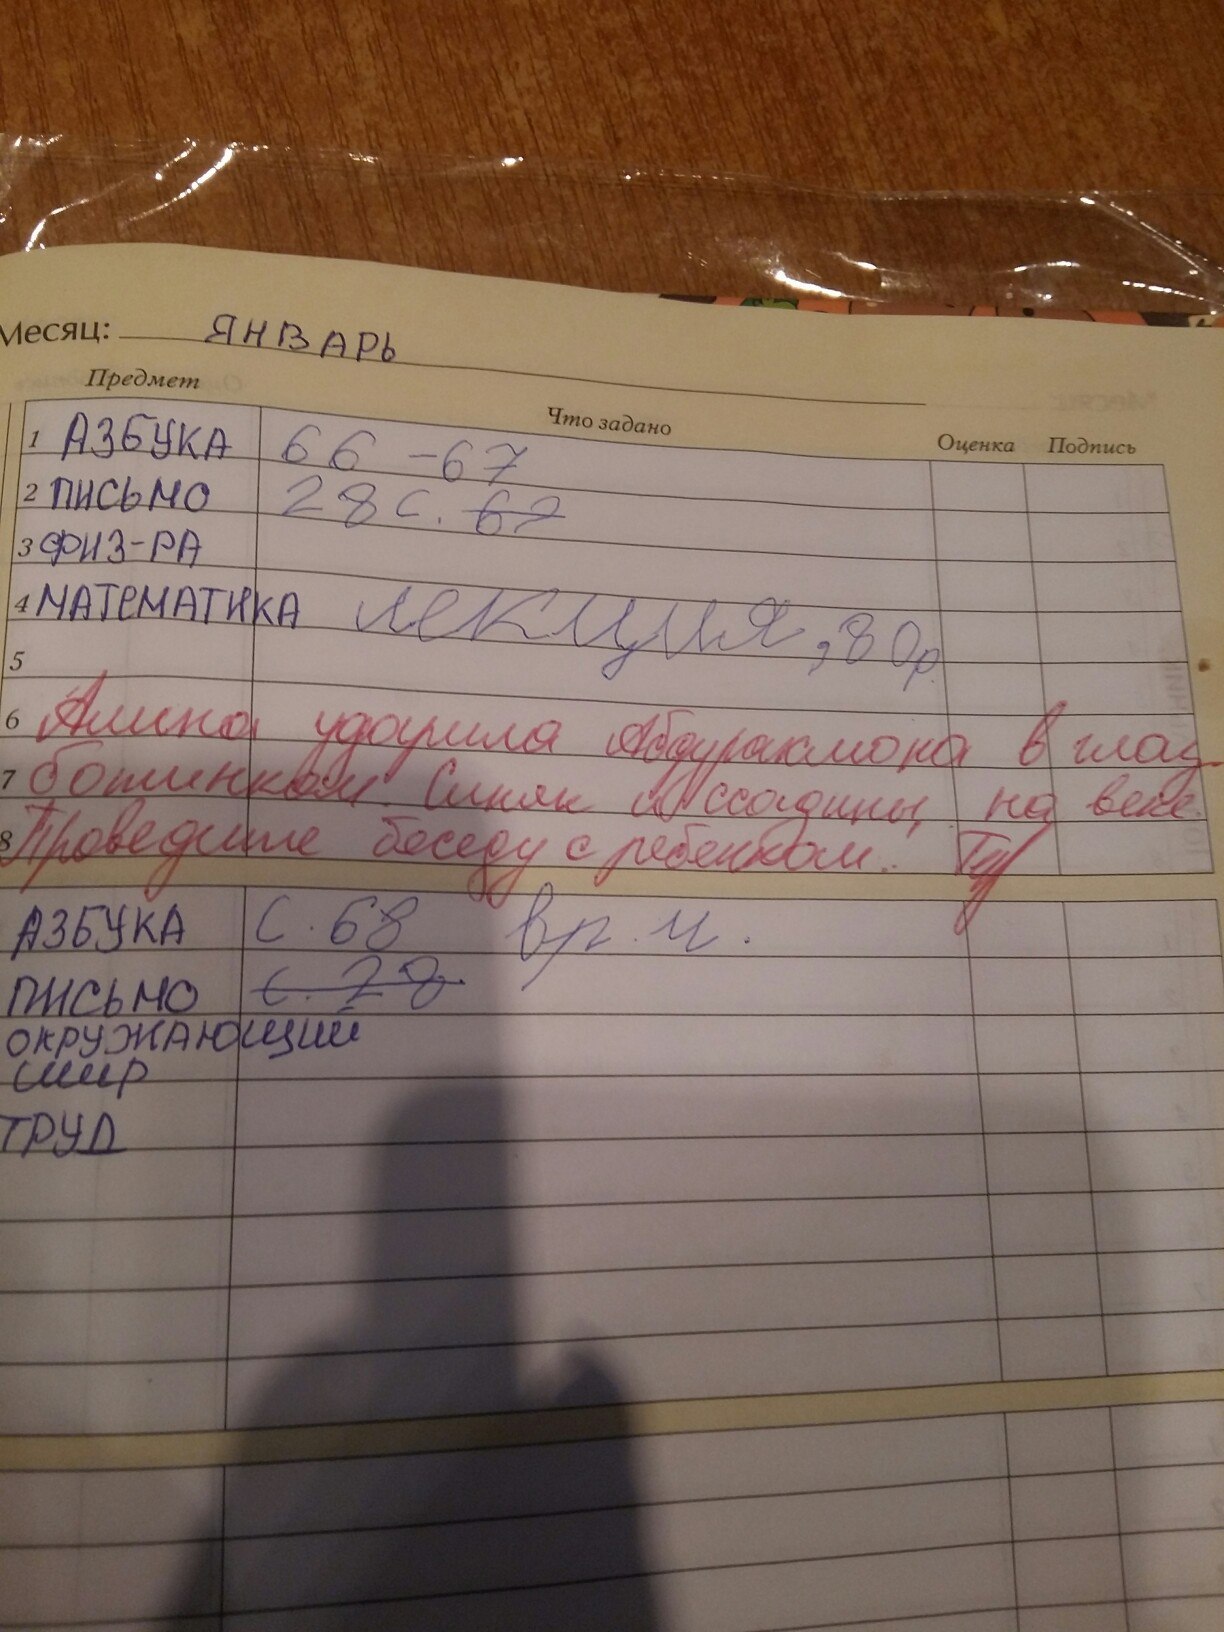 Месяц: ЯНВАРЬ
Предмет Что задано Оценка Подпись
1 АЗБУКА 66-67
2 ПИСЬМО 28 с. 67
3 ФИЗ-РА
4 МАТЕМАТИКА ЛЕКЦИЯ, 80р.
5
6 Амина ударила Абдурахмона в глаз
7 ботинком. Синяк и ссадины на веке.
8 Проведите беседу с ребенком.
АЗБУКА С. 68 в р. и.
ПИСЬМО с. 28
ОКРУЖАЮЩИЙ
МИР
ТРУД